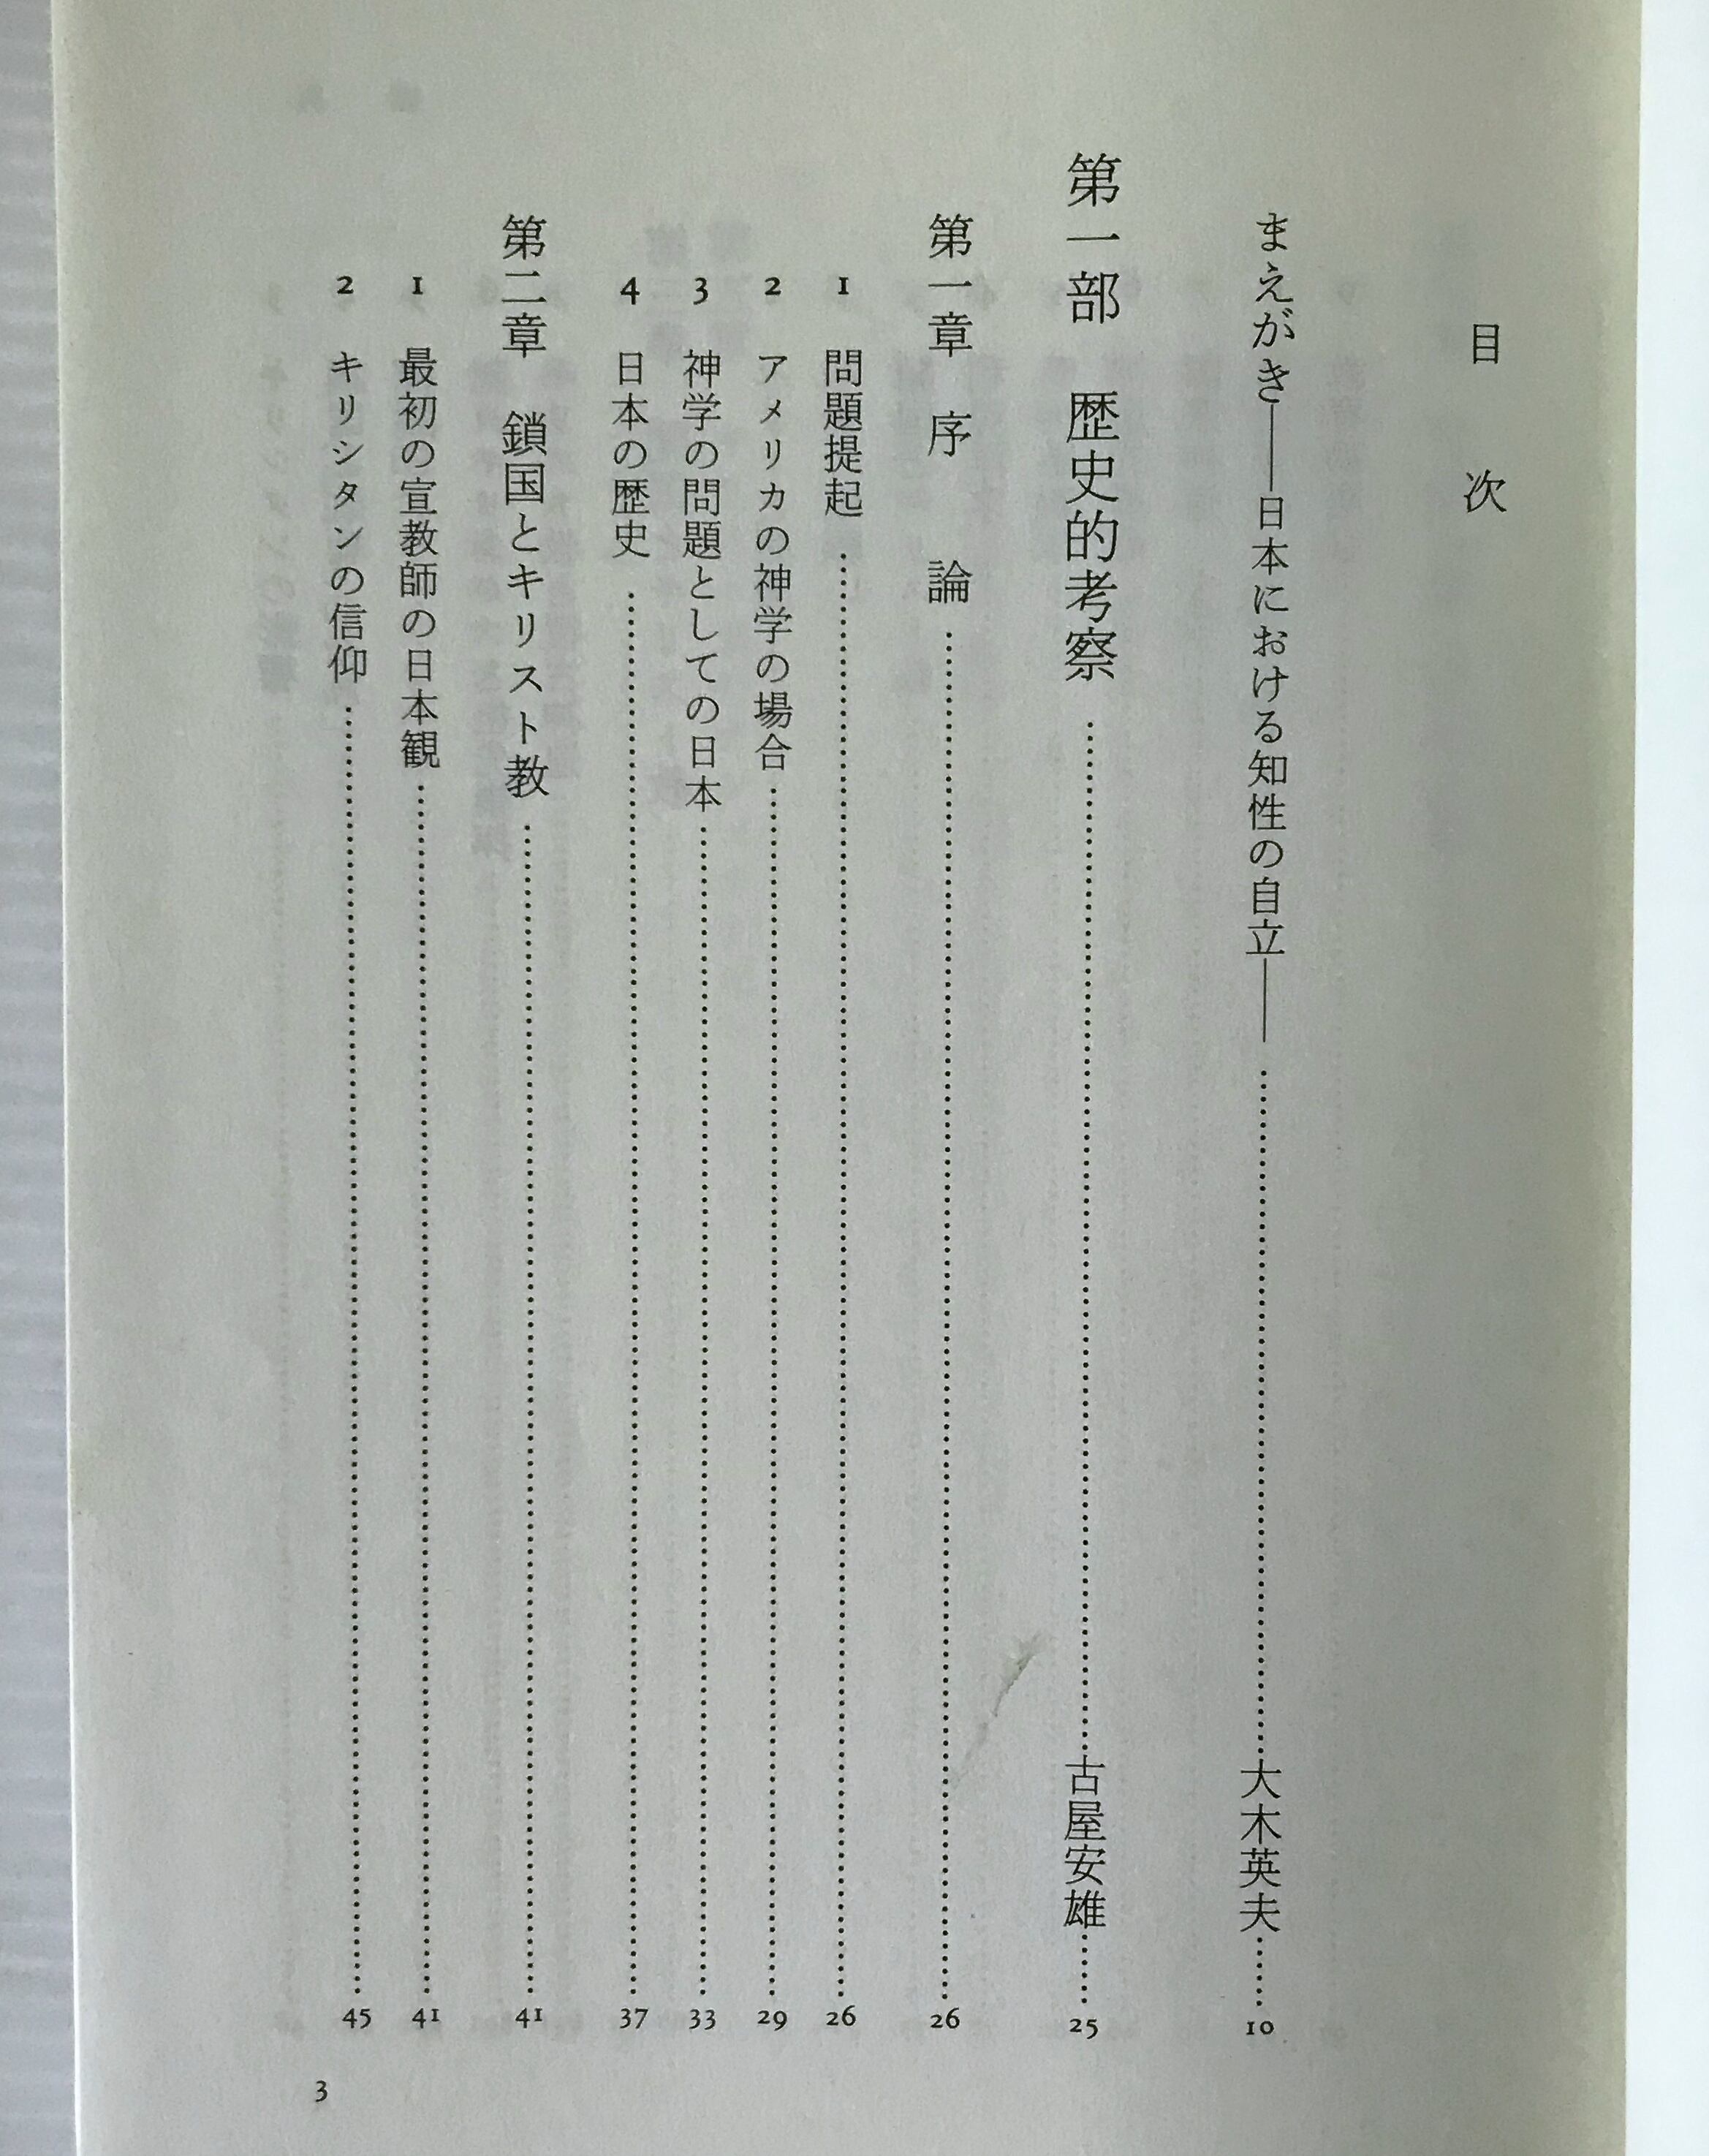 目次
まえがき――日本における知性の自立――……大木英夫……10
第一部 歴史的考察……古屋安雄……25
第一章 序論……26
1 問題提起……26
2 アメリカの神学の場合……29
3 神学の問題としての日本……33
4 日本の歴史……37
第二章 鎖国とキリスト教……41
1 最初の宣教師の日本観……41
2 キリシタンの信仰……45
3